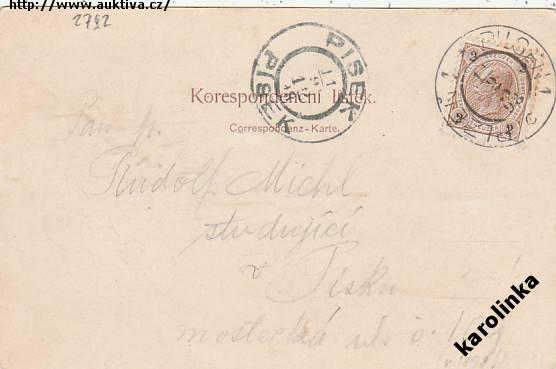 http://www.auktiva.cz/
2792
PISEK PISEK
Korespondenční lístek.
Correspondenz-Karte.
Pan p.
Rudolf Michl
studující
v Písku
mostecká ul. č.
karolinka